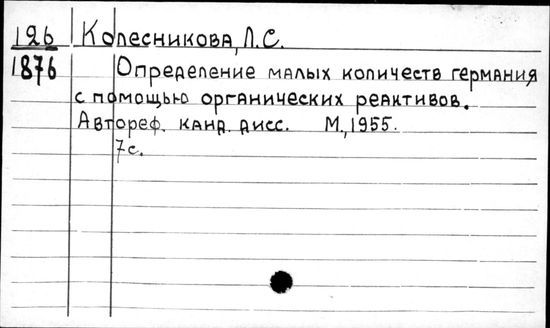 126 Колесникова, Л.С.
1876 Определение малых количеств германия
с помощью органических реактивов.
Автореф. канд. дисс. М., 1955.
7с.